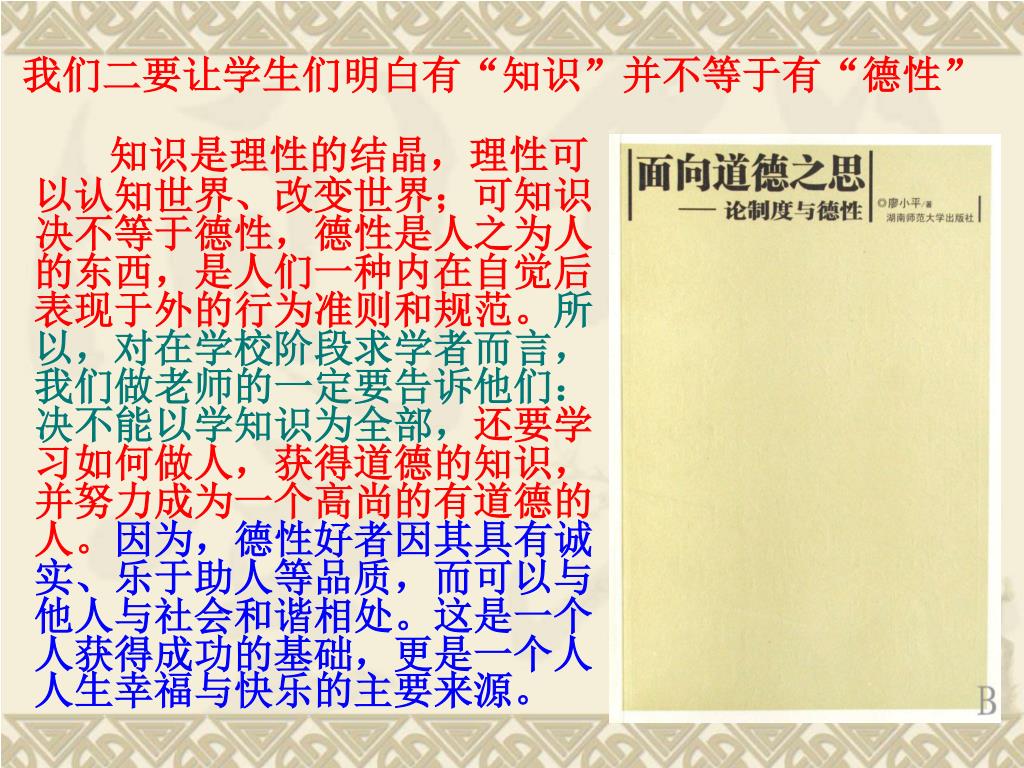 我们二要让学生们明白有“知识”并不等于有“德性”
知识是理性的结晶，理性可
以认知世界、改变世界；可知识
决不等于德性，德性是人之为人
的东西，是人们一种内在自觉后
表现于外的行为准则和规范。所
以，对在学校阶段求学者而言，
我们做老师的一定要告诉他们：
决不能以学知识为全部，还要学
习如何做人，获得道德的知识，
并努力成为一个高尚的有道德的
人。因为，德性好者因其具有诚
实、乐于助人等品质，而可以与
他人与社会和谐相处。这是一个
人获得成功的基础，更是一个人
人生幸福与快乐的主要来源。
面向道德之思
—— 论制度与德性
◎廖小平/著
湖南师范大学出版社
B